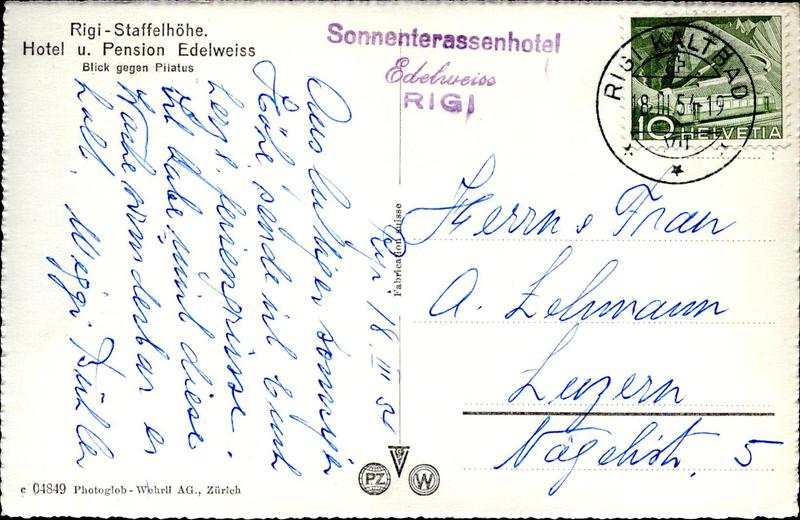 Rigi-Staffelhöhe.
Hotel u. Pension Edelweiss
Blick gegen Pilatus
Sonnenterassenhotel
Edelweiss
RIGI
RIGI KALTBAD
18.III.54-19
10 HELVETIA
Rigi 18. III 54
Aus luftiger sonniger
Höhe sende ich Euch
herzl. Feriengrüsse.
Ich habe mind diese
Woche wunderbar er
holt. Meggi
Fabrication suisse
Herrn & Frau
A. Lehmann
Luzern
Nägelistr. 5
c 04849 Photoglob-Wehrli AG., Zürich
PZ W